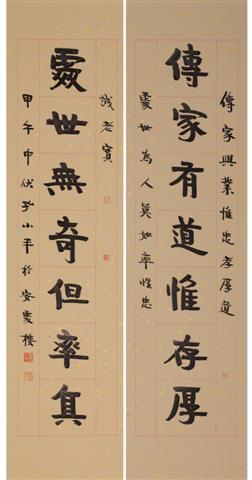 傳家興業惟孝厚道
傳家有道惟存厚
處世為人莫如率性忠
誠老實
處世無奇但率真
甲午中伏孫小平於安處樓